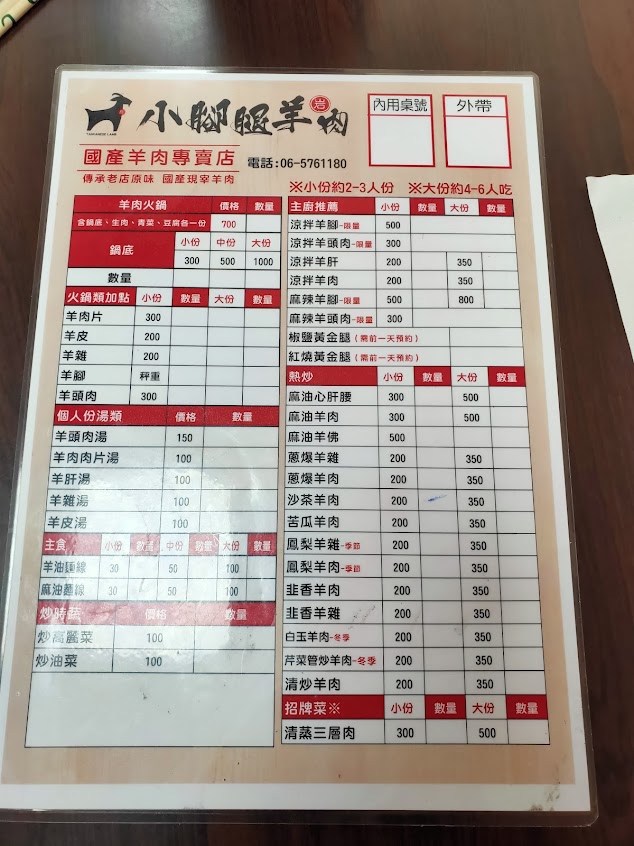 小腳腿羊肉
岩
TAIWANESE LAMB
國產羊肉專賣店
電話:06-5761180
傳承老店原味 國產現宰羊肉
內用桌號 外帶
※小份約2-3人份 ※大份約4-6人吃
羊肉火鍋 價格 數量
含鍋底、生肉、青菜、豆腐各一份 700
鍋底 小份 中份 大份
300 500 1000
數量
火鍋類加點 小份 數量 大份 數量
羊肉片 300
羊皮 200
羊雜 200
羊腳 秤重
羊頭肉 300
個人份湯類 價格 數量
羊頭肉湯 150
羊肉肉片湯 100
羊肝湯 100
羊雜湯 100
羊皮湯 100
主食 小份 數量 中份 數量 大份 數量
羊油麵線 30 50 100
麻油麵線 30 50 100
炒時蔬 價格 數量
炒高麗菜 100
炒油菜 100
主廚推薦 小份 數量 大份 數量
涼拌羊腳-限量 500
涼拌羊頭肉-限量 300
涼拌羊肝 200 350
涼拌羊肉 200 350
麻辣羊腳-限量 500 800
麻辣羊頭肉-限量 300
椒鹽黃金腿(需前一天預約)
紅燒黃金腿(需前一天預約)
熱炒 小份 數量 大份 數量
麻油心肝腰 300 500
麻油羊肉 300 500
麻油羊佛 500
蔥爆羊雜 200 350
蔥爆羊肉 200 350
沙茶羊肉 200 350
苦瓜羊肉 200 350
鳳梨羊雜-季節 200 350
鳳梨羊肉-季節 200 350
韭香羊肉 200 350
韭香羊雜 200 350
白玉羊肉-冬季 200 350
芹菜管炒羊肉-冬季 200 350
清炒羊肉 200 350
招牌菜※ 小份 數量 大份 數量
清蒸三層肉 300 500